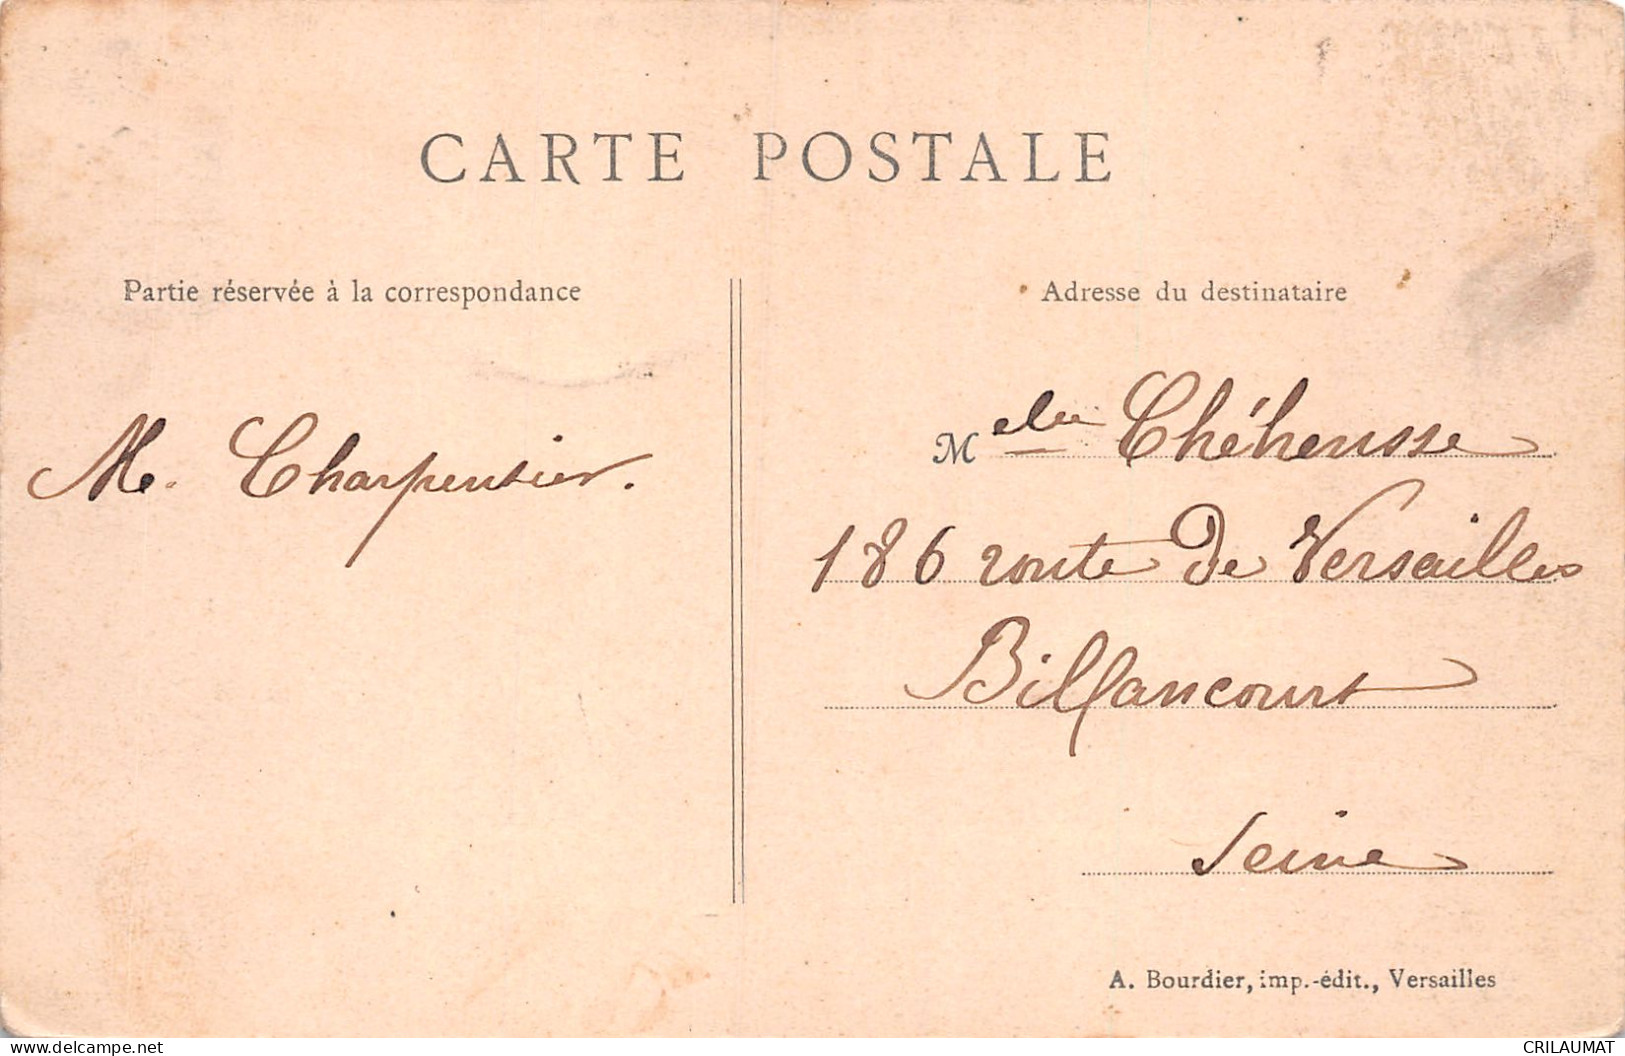 CARTE POSTALE
Partie réservée à la correspondance
Adresse du destinataire
M. Charpentier.
Melle Chéhensse
186 route de Versailles
Billancourt
Seine
A. Bourdier, imp.-édit., Versailles
CRILAUMAT